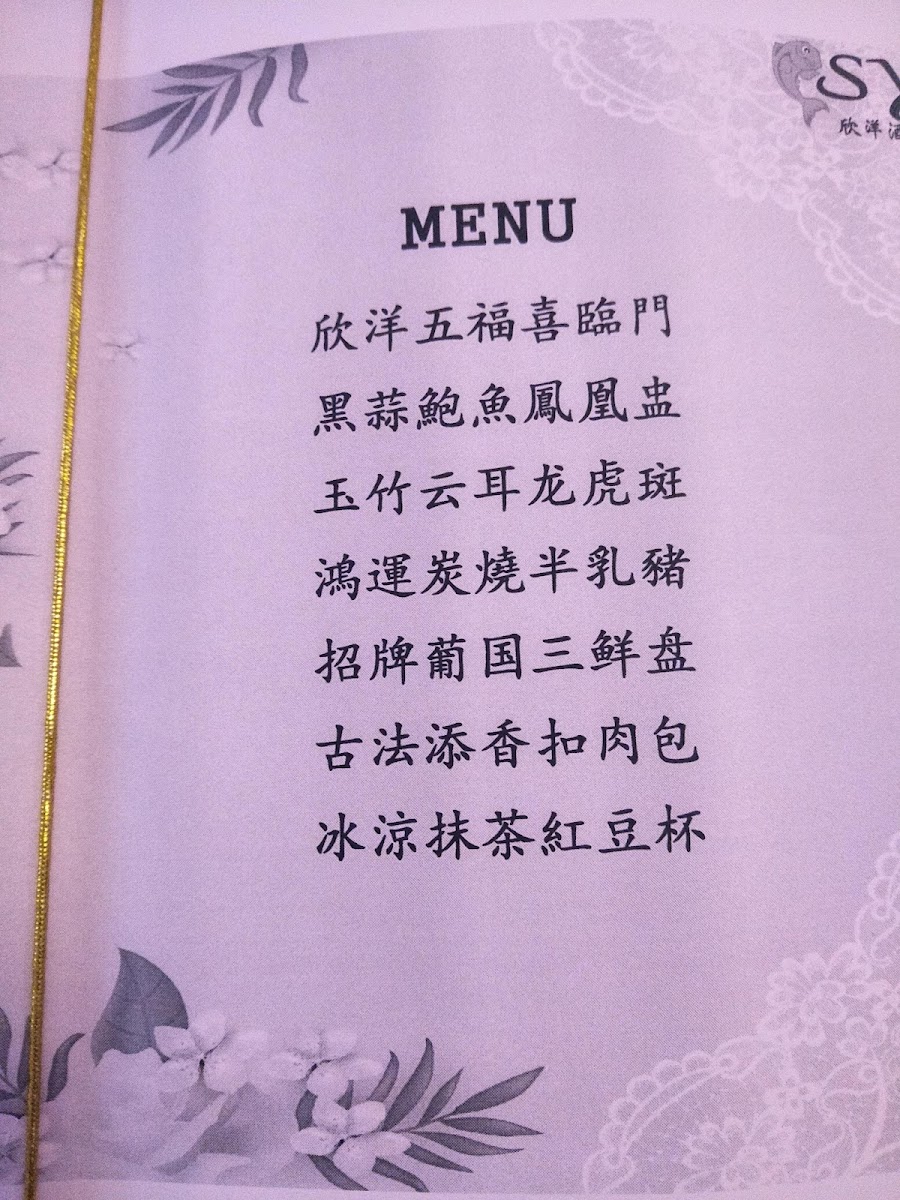 SY
欣洋酒
MENU
欣洋五福喜臨門
黑蒜鮑魚鳳凰盅
玉竹云耳龙虎斑
鴻運炭燒半乳豬
招牌葡国三鲜盘
古法添香扣肉包
冰涼抹茶紅豆杯